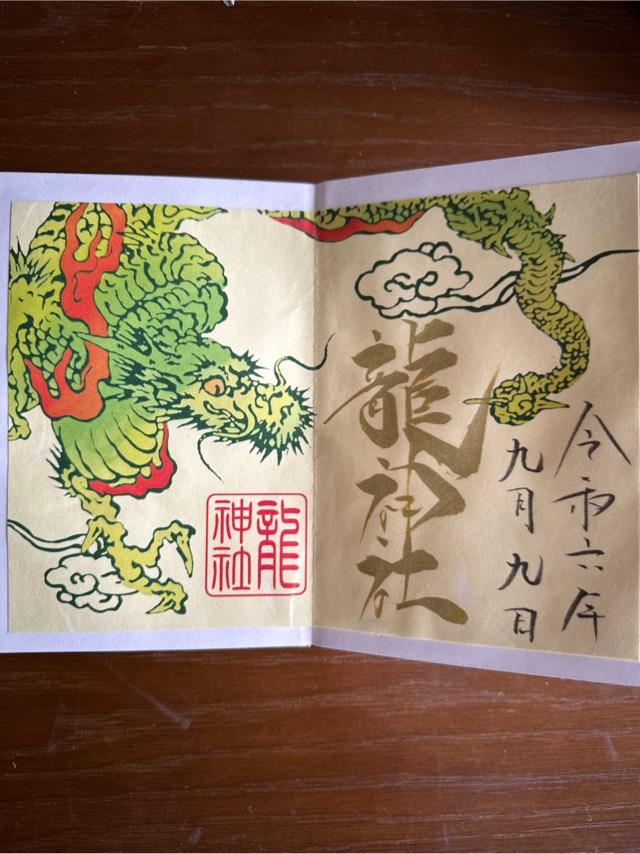 令和六年
九月九日
龍神社
龍
神社